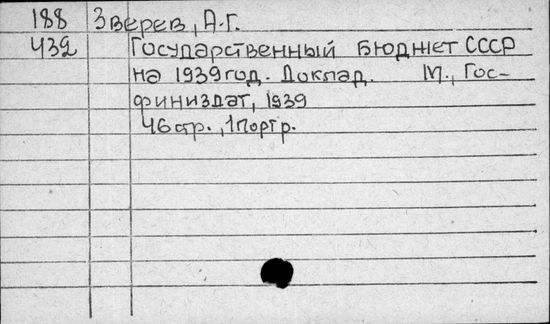 188 Зверев, А.Г.
439 Государственный бюджет СССР
на 1939 год. Доклад. М., Гос-
финиздат, 1939
46 стр., 1 портр.